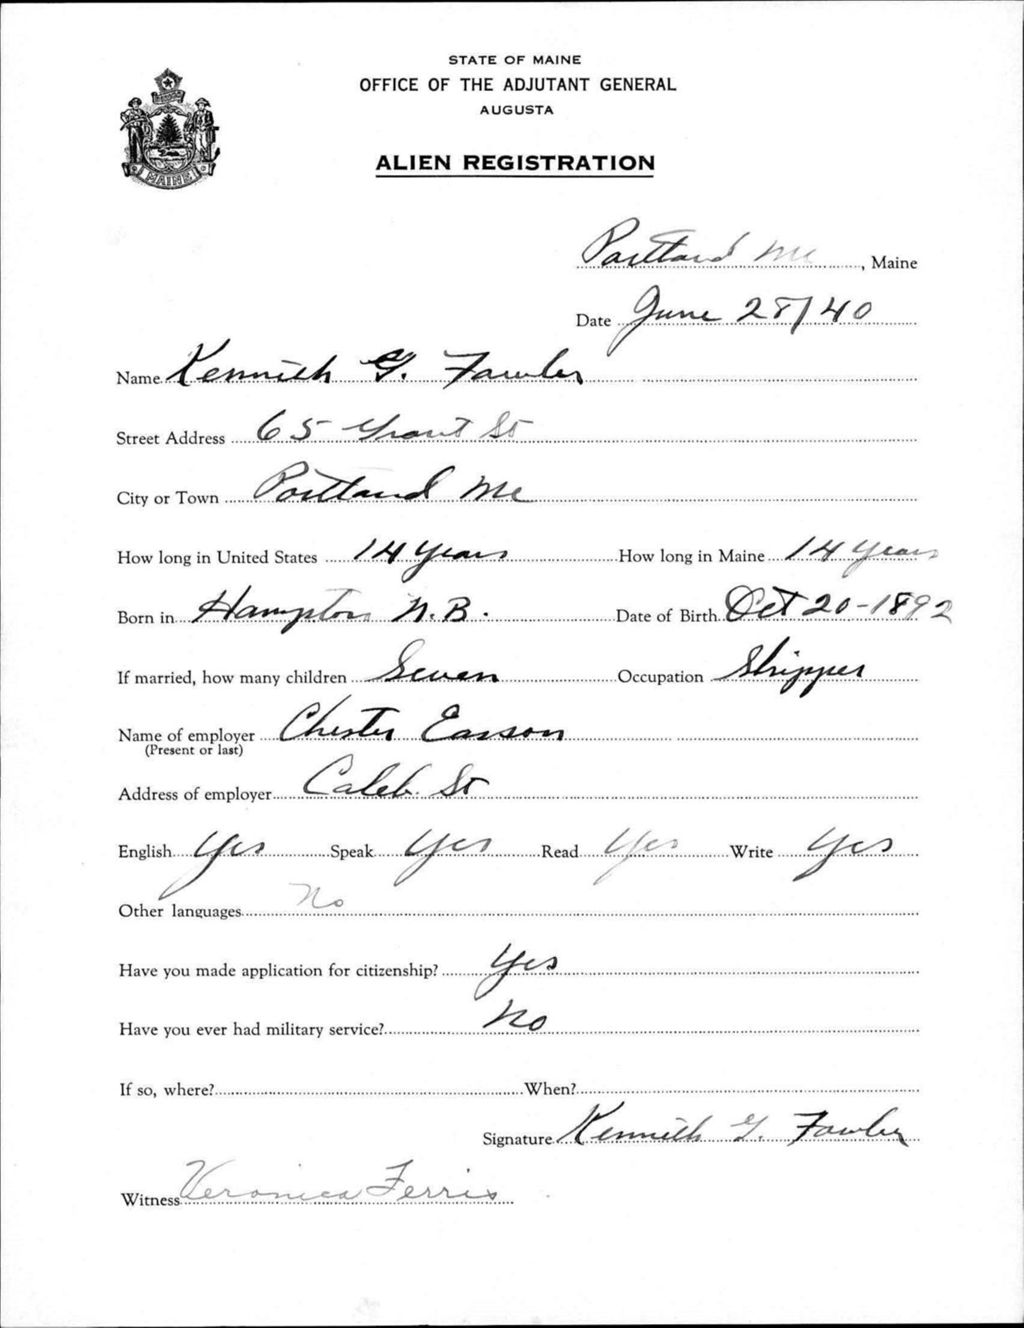 STATE OF MAINE
OFFICE OF THE ADJUTANT GENERAL
AUGUSTA
ALIEN REGISTRATION
MAINE
Portland Me, Maine
Date June 28/40
Name Kennith G. Fowler
Street Address 65 Grant St
City or Town Portland Me
How long in United States 14 years How long in Maine 14 years
Born in Hampton N.B. Date of Birth Oct 20-1892
If married, how many children Seven Occupation Shipper
Name of employer Chester Easson
(Present or last)
Address of employer Caleb St
English Yes Speak Yes Read Yes Write Yes
Other languages No
Have you made application for citizenship? Yes
Have you ever had military service? No
If so, where? When?
Signature Kennith G. Fowler
Witness Veronica Ferris